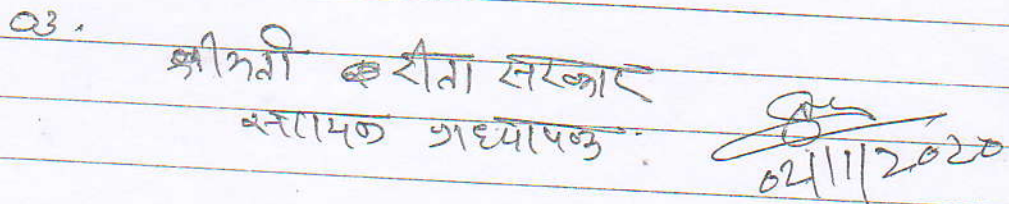 03.
श्रीमती रीता सरकार
सहायक प्राध्यापक
02/11/2020